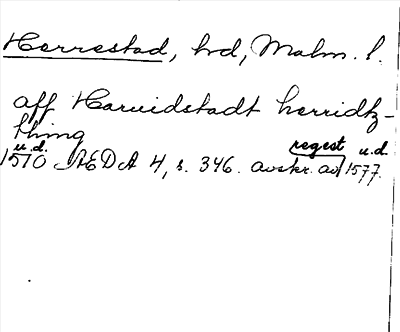 Herrestad, hd, Malm. l.
aff Haruidstadt herridtz-
thing
u.d. regest u.d.
1570 ÆDA 4, s. 346. avskr. av 1577.